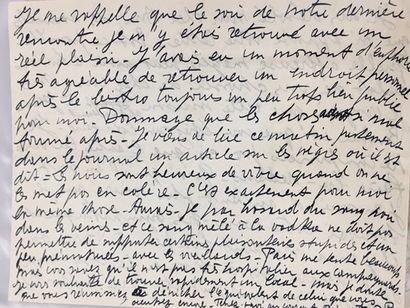 Je me rappelle que le soir de notre dernière
rencontre je m'y étais retrouvé avec un
réel plaisir - J'avais eu un moment d'euphorie
très agréable de retrouver un endroit personnel
après le bistro toujours un peu trop lieu public
pour moi. Dommage que les choses aient mal
tourné après - Je viens de lire ce matin justement
dans le journal un article sur les nègres où il est
dit = les noirs sont heureux de vivre quand on ne
les met pas en colère. C'est exactement pour moi
la même chose - Aurais-je par hasard du sang noir
dans les veines - et ce sang mêlé à la vodka ne doit pas
permettre de supporter certaines plaisanteries stupides et un
peu - avec les vieillards -
mais vous savez qu'il n'est pas très hospitalier aux
Je vous souhaite de trouver rapidement un local - mais je doute
que vous réussissiez à dénicher l'équivalent de celui que vous